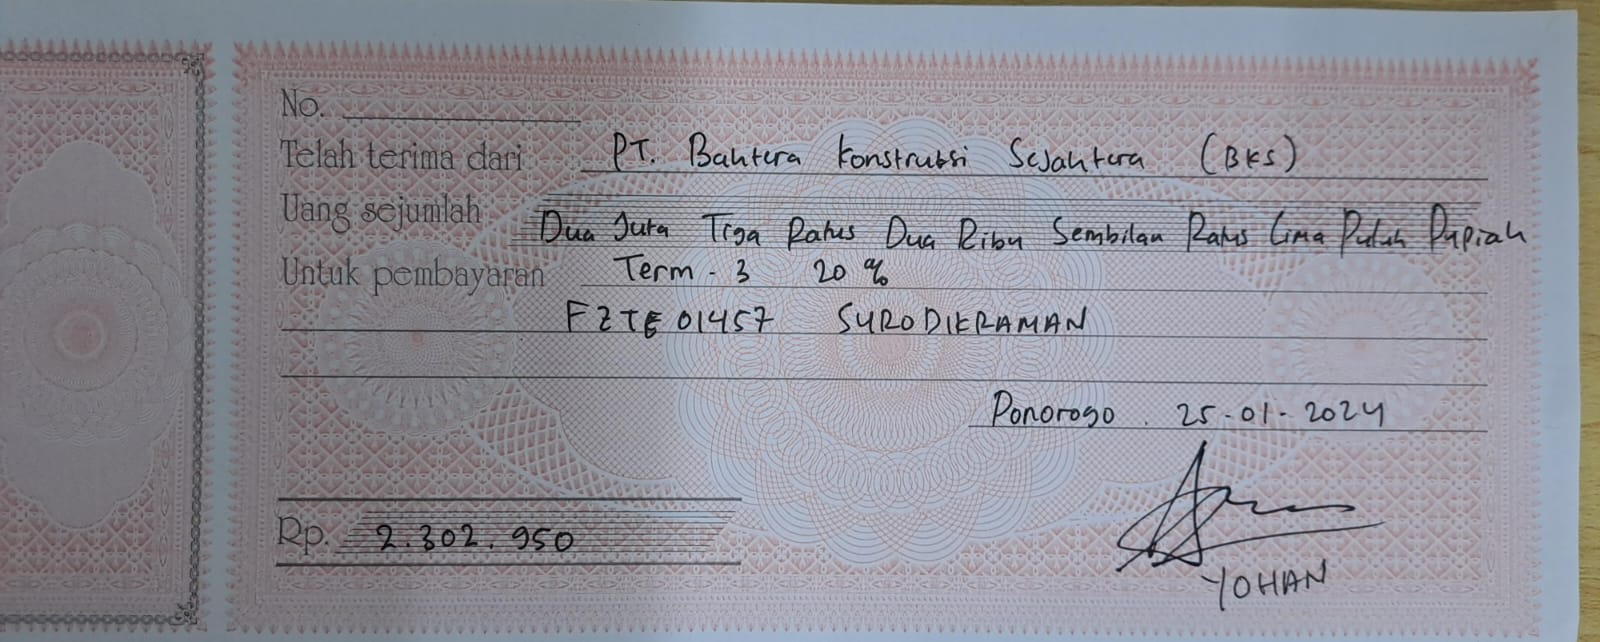 No.
Telah terima dari PT. Bahtera Konstruksi Sejahtera (BKS)
Uang sejumlah Dua Juta Tiga Ratus Dua Ribu Sembilan Ratus Lima Puluh Rupiah
Untuk pembayaran Term - 3 20 %
FZTE01457 SURODIKRAMAN
Ponorogo . 25-01-2024
Rp. 2.302.950
YOHAN